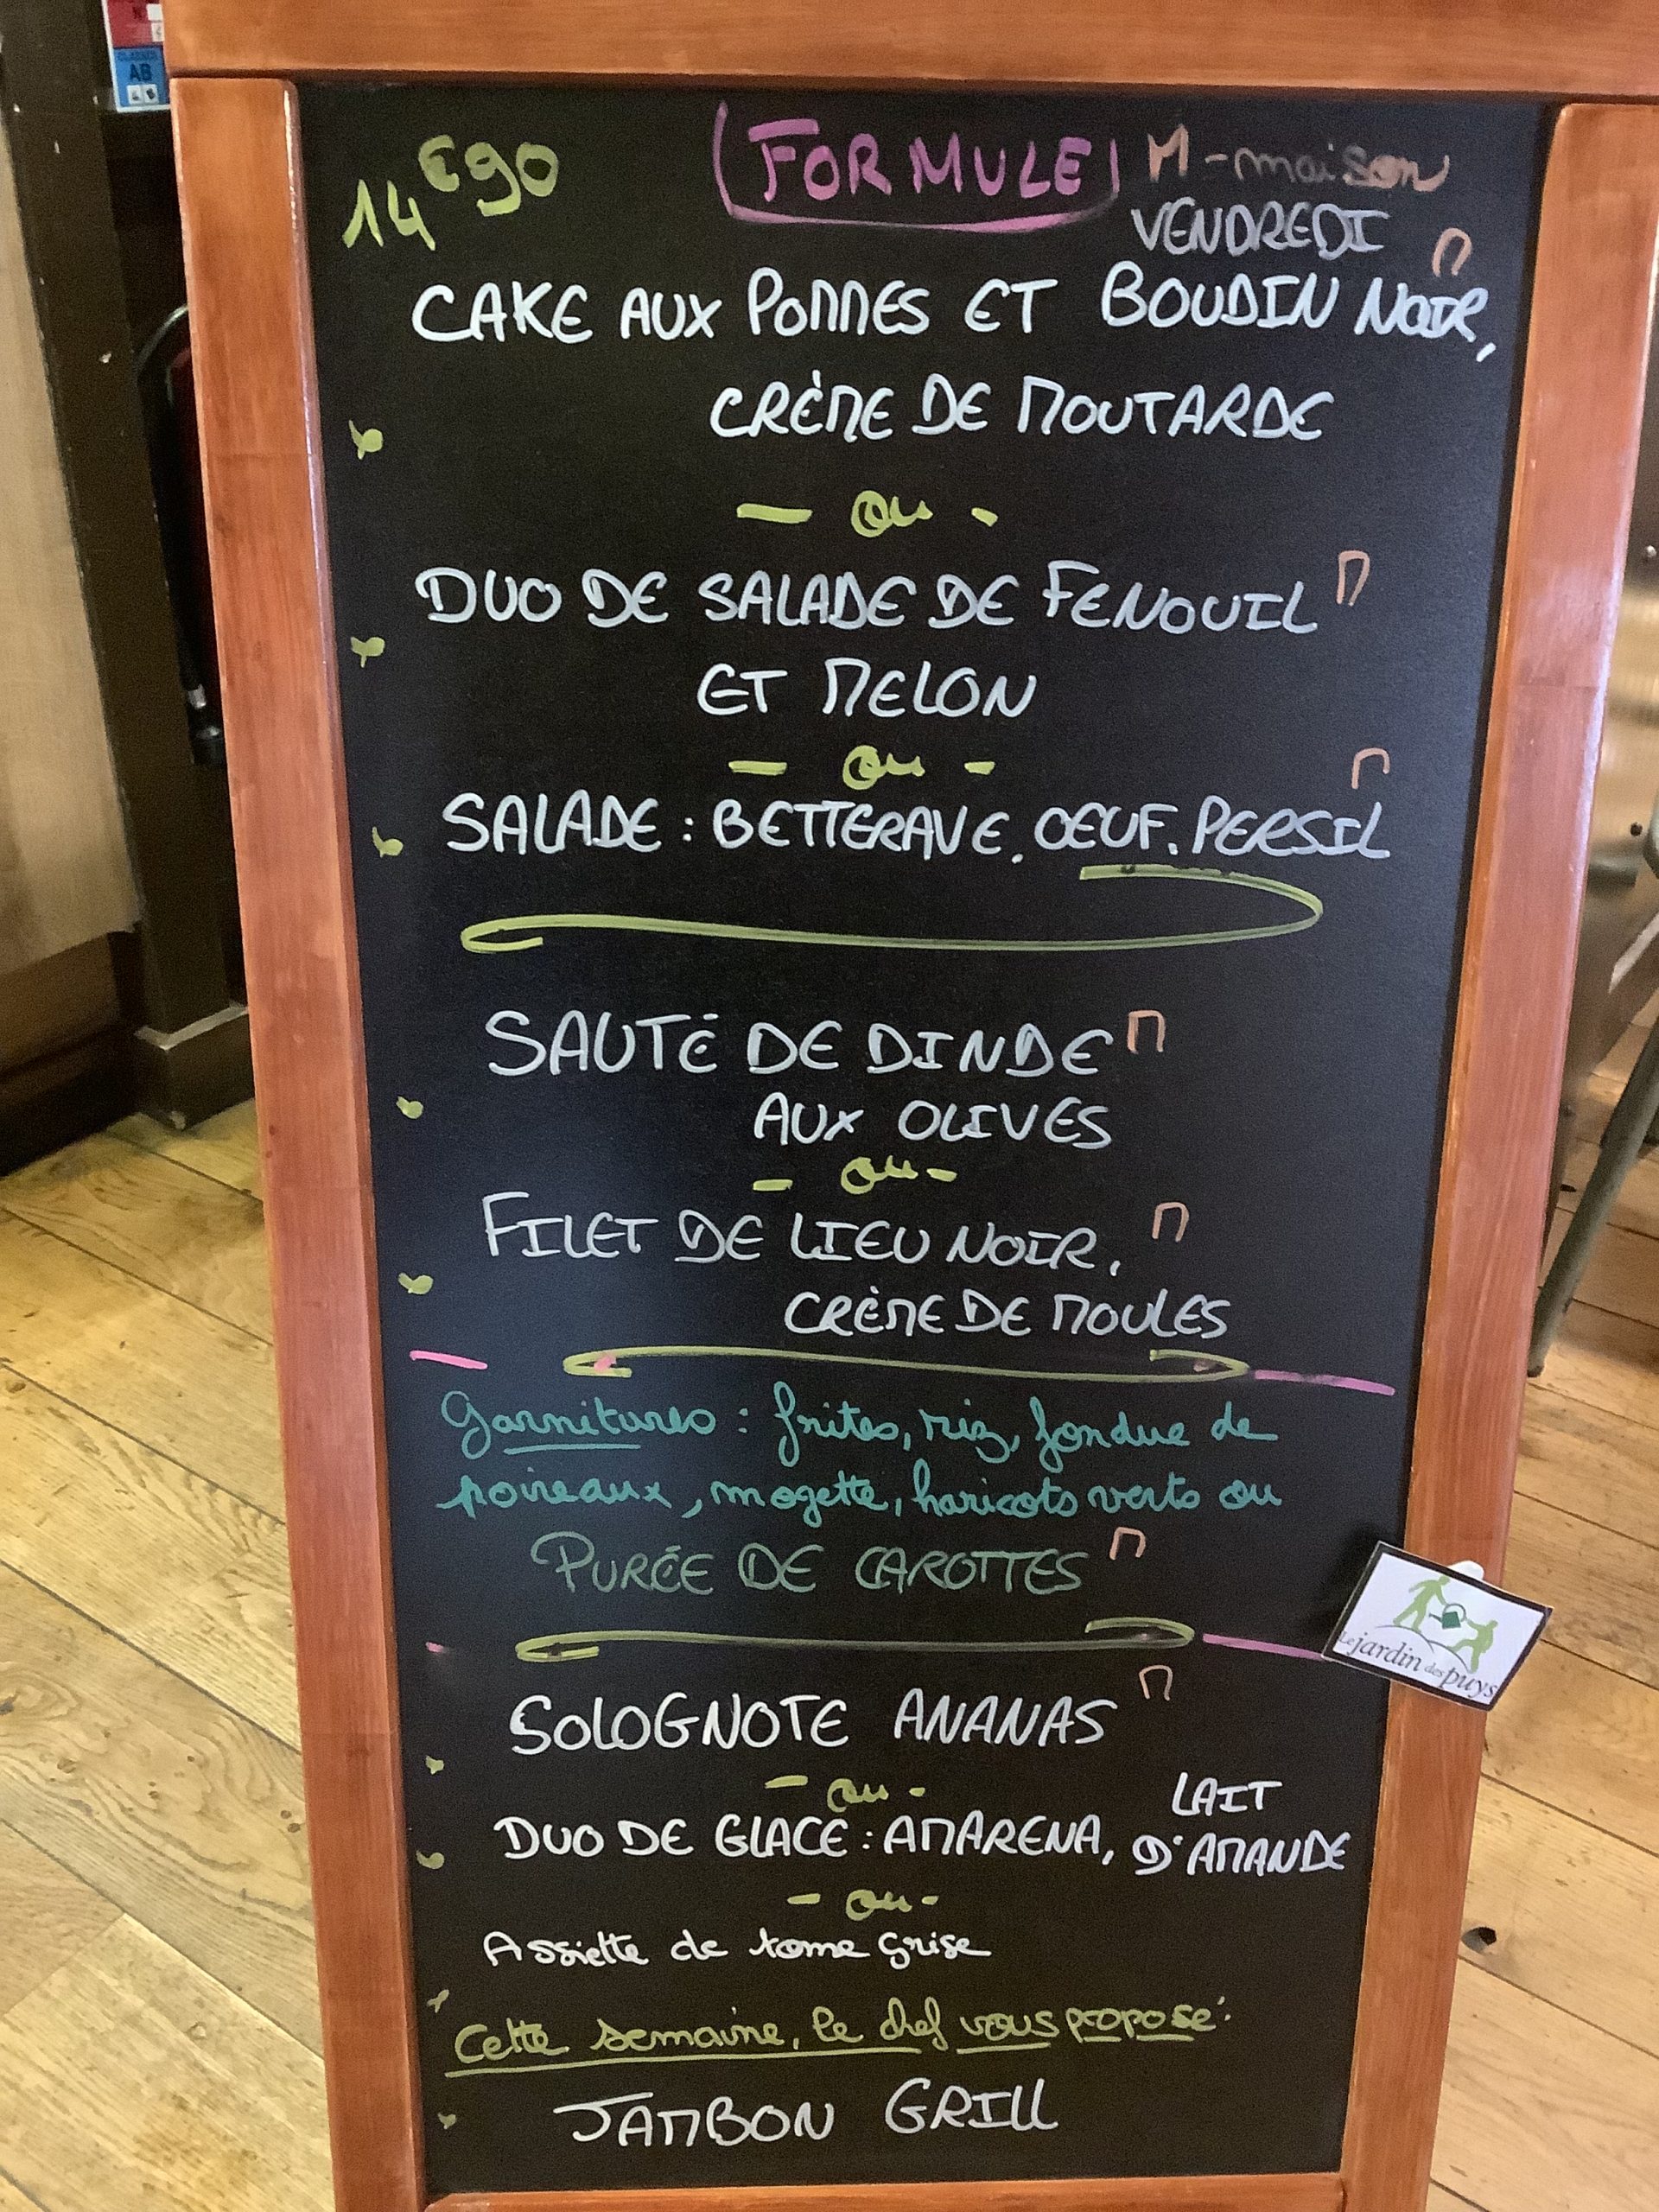 CLASSES
AB
14€90
FORMULE M - maison
VENDREDI
CAKE AUX POMMES ET BOUDIN NOIR, M
CRÈME DE MOUTARDE
- ou -
DUO DE SALADE DE FENOUIL M
ET MELON
- ou -
SALADE : BETTERAVE. OEUF. PERSIL M
SAUTÉ DE DINDE M
AUX OLIVES
- ou -
FILET DE LIEU NOIR, M
CRÈME DE MOULES
Garnitures : frites, riz, fondue de
poireaux, mogette, haricots verts ou
PURÉE DE CAROTTES M
Le jardin des puys
SOLOGNOTE ANANAS M
- ou -
DUO DE GLACE : AMARENA, LAIT
D'AMANDE
- ou -
Assiette de tome grise
Cette semaine, le chef vous propose :
JAMBON GRILL